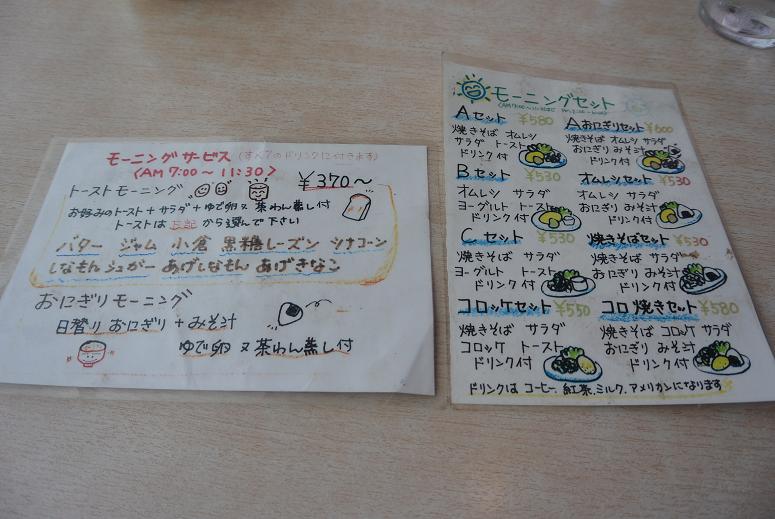 モーニングサービス (すべてのドリンクに付きます)
〈AM 7:00～11:30〉
トーストモーニング ¥370～
お好みのトースト+サラダ+ゆで卵又茶わん蒸し付
トーストは左記から選んで下さい
バター ジャム 小倉 黒糖レーズン ツナコーン
しなもんシュガー あげしなもん あげきなこ
おにぎりモーニング
日替り おにぎり+みそ汁
ゆで卵又茶わん蒸し付
モーニングセット
Aセット ¥580
焼きそば オムレツ
サラダ トースト
ドリンク付
Bセット ¥530
オムレツ サラダ
ヨーグルト トースト
ドリンク付
Cセット ¥530
焼きそば サラダ
ヨーグルト トースト
ドリンク付
コロッケセット ¥550
焼きそば サラダ
コロッケ トースト
ドリンク付
Aおにぎりセット ¥600
焼きそば オムレツ
おにぎり みそ汁
ドリンク付
オムレツセット ¥530
オムレツ サラダ
おにぎり みそ汁
ドリンク付
焼きそばセット ¥530
焼きそば サラダ
おにぎり みそ汁
ドリンク付
コロ焼きセット ¥580
焼きそば コロッケ サラダ
おにぎり みそ汁
ドリンク付
ドリンクは コーヒー、紅茶、ミルク、アメリカンになります